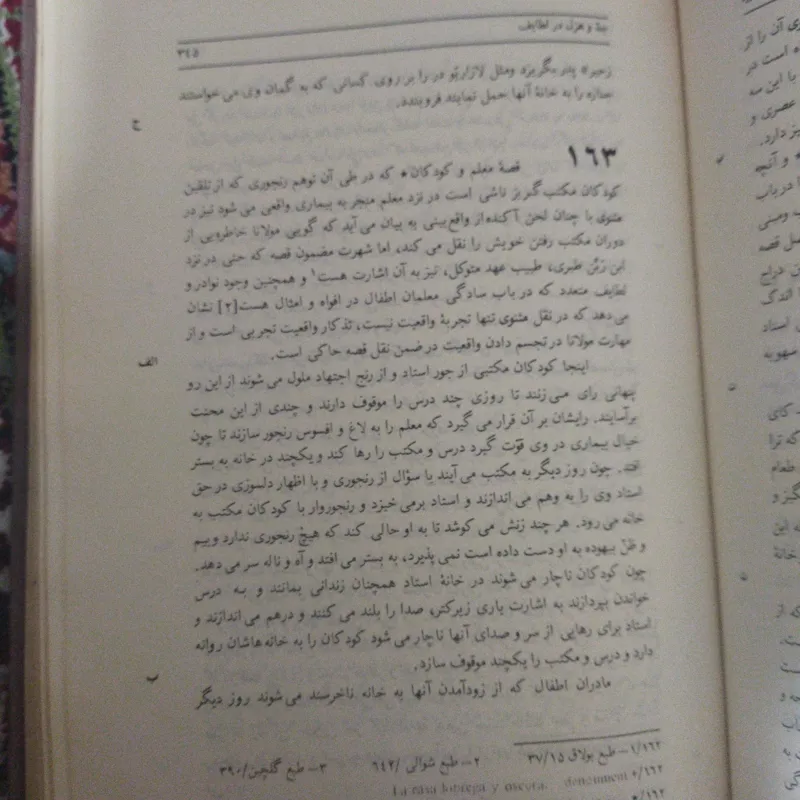 جد و هزل در لطایف
۳۴۵
زنجیره پدر بگریزد ومثل لازاریّو در را بر روی کسانی که به گمان وی می خواستند
جنازه را به خانهٔ آنها حمل نمایند فروبندد.
ج
۱۶۳ قصهٔ معلم و کودکان* که در طی آن توهم رنجوری که از تلقین
کودکان مکتب گریز ناشی است در نزد معلم منجر به بیماری واقعی می شود نیز در
مثنوی با چنان لحن آکنده از واقع بینی به بیان می آید که گویی مولانا خاطرویی از
دوران مکتب رفتن خویش را نقل می کند، اما شهرت مضمون قصه که حتی در نزد
ابن ربّن طبری، طبیب عهد متوکل، نیز به آن اشارت هست۱ و همچنین وجود نوادر و
لطایف متعدد که در باب سادگی معلمان اطفال در افواه و امثال هست[۲] نشان
می دهد که در نقل مثنوی تنها تجربهٔ واقعیت نیست، تذکار واقعیت تجربی است و از
مهارت مولانا در تجسم دادن واقعیت در ضمن نقل قصه حاکی است.
الف
اینجا کودکان مکتبی از جور استاد و از رنج اجتهاد ملول می شوند از این رو
پنهانی رای می زنند تا روزی چند درس را موقوف دارند و چندی از این محنت
برآسایند. رایشان بر آن قرار می گیرد که معلم را به لاغ و افسوس رنجور سازند تا چون
خیال بیماری در وی قوّت گیرد درس و مکتب را رها کند و یکچند در خانه به بستر
افتد. چون روز دیگر به مکتب می آیند با سؤال از رنجوری و با اظهار دلسوزی در حق
استاد وی را به وهم می اندازند و استاد برمی خیزد و رنجوروار با کودکان مکتب به
خانه می رود. هر چند زنش می کوشد تا به او حالی کند که هیچ رنجوری ندارد و بیم
و ظنّ بیهوده به او دست داده است نمی پذیرد، به بستر می افتد و آه و ناله سر می دهد.
چون کودکان ناچار می شوند در خانهٔ استاد همچنان زندانی بمانند و به درس
خواندن بپردازند به اشارت یاری زیرکتر، صدا را بلند می کنند و درهم می اندازند و
استاد برای رهایی از سر و صدای آنها ناچار می شود کودکان را به خانه هاشان روانه
دارد و درس و مکتب را یکچند موقوف سازد.
ب
مادران اطفال که از زودآمدن آنها به خانه ناخرسند می شوند روز دیگر
۱/۱۶۲– طبع بولاق ۳۷/۱۵ ۲– طبع شوالی /۶۴۲ ۳– طبع گلچین/۳۹۰
۱۶۲/+ denominent La casa lobrega y oscura
۱۶۳/*